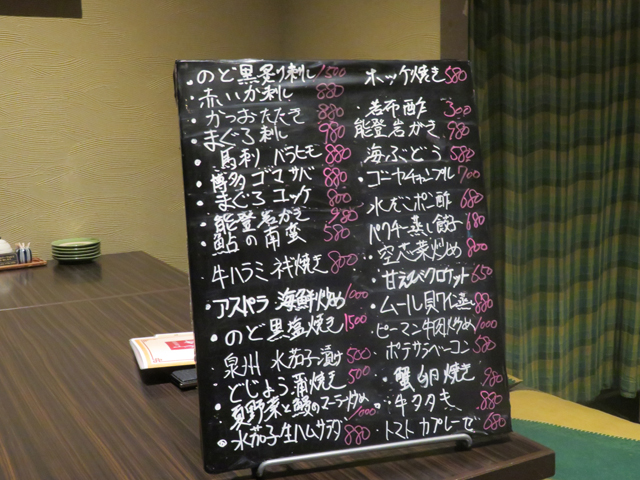 のど黒炙り刺し 1500
赤いか刺し 880
かつおたたき 880
まぐろ刺し 980
馬刺 バラヒモ 880
博多ゴマサバ 880
まぐろユッケ 800
能登岩がき 980
鮎の南蛮 580
牛ハラミ 祥焼き 800
アスパラ 海鮮炒め 1000
のど黒塩焼き 1500
泉州 水茄子漬け 500
どじょう蒲焼き 500
夏野菜と鰻のマーラー炒め 1000
水茄子生ハムサラダ 880
ホッケ焼き 580
若布酢 300
能登岩がき 980
海ぶどう 580
ゴーヤチャンプル 700
水だこポン酢 680
パクチー蒸し餃子 680
空芯菜炒め 800
甘えびクロケット 650
ムール貝ワイン蒸し 880
ピーマン牛肉炒め 1000
ポテサラベーコン 580
蟹卵焼き 980
牛タタキ 880
トマトカプレーゼ 680